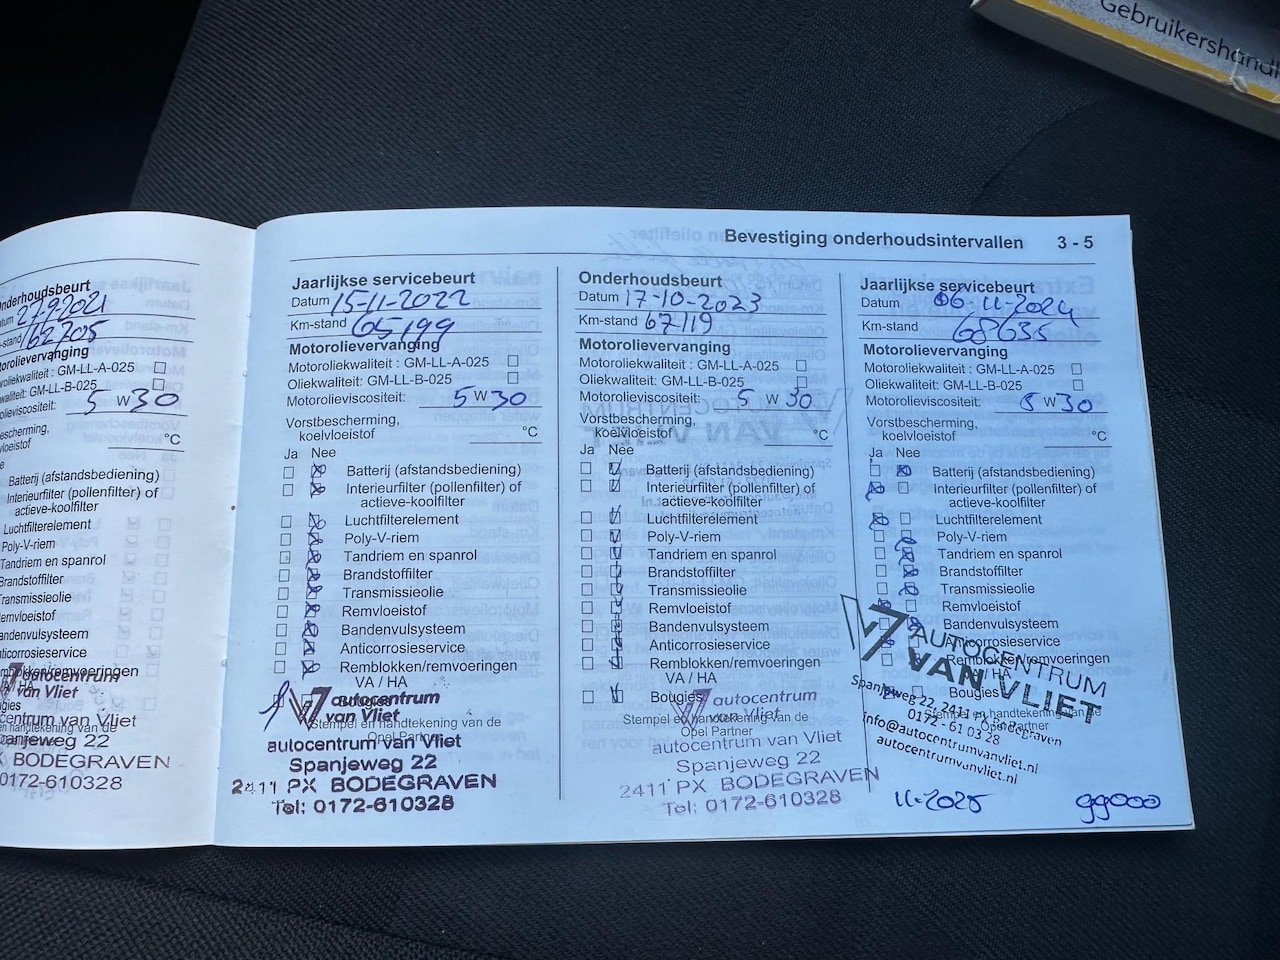 Gebruikershandl
Bevestiging onderhoudsintervallen 3 - 5
Onderhoudsbeurt
27-9-2021
62705
Motorolievervanging
GM-LL-A-025
GM-LL-B-025
5 W 30
°C
Batterij (afstandsbediening)
Interieurfilter (pollenfilter) of
actieve-koolfilter
Luchtfilterelement
Poly-V-riem
Tandriem en spanrol
Brandstoffilter
Transmissieolie
Remvloeistof
Bandenvulsysteem
Anticorrosieservice
Remblokken/remvoeringen
autocentrum
van Vliet
autocentrum van Vliet
Spanjeweg 22
BODEGRAVEN
0172-610328
Jaarlijkse servicebeurt
Datum 15-11-2022
Km-stand 65199
Motorolievervanging
Motoroliekwaliteit : GM-LL-A-025
Oliekwaliteit: GM-LL-B-025
Motorolieviscositeit: 5 W 30
Vorstbescherming,
koelvloeistof °C
Ja Nee
Batterij (afstandsbediening)
Interieurfilter (pollenfilter) of
actieve-koolfilter
Luchtfilterelement
Poly-V-riem
Tandriem en spanrol
Brandstoffilter
Transmissieolie
Remvloeistof
Bandenvulsysteem
Anticorrosieservice
Remblokken/remvoeringen
VA / HA
Bougies
Stempel en handtekening van de
Opel Partner
autocentrum
van Vliet
autocentrum van Vliet
Spanjeweg 22
2411 PX BODEGRAVEN
Tel: 0172-610328
Onderhoudsbeurt
Datum 17-10-2023
Km-stand 67119
Motorolievervanging
Motoroliekwaliteit : GM-LL-A-025
Oliekwaliteit: GM-LL-B-025
Motorolieviscositeit: 5 W 30
Vorstbescherming,
koelvloeistof °C
Ja Nee
Batterij (afstandsbediening)
Interieurfilter (pollenfilter) of
actieve-koolfilter
Luchtfilterelement
Poly-V-riem
Tandriem en spanrol
Brandstoffilter
Transmissieolie
Remvloeistof
Bandenvulsysteem
Anticorrosieservice
Remblokken/remvoeringen
VA / HA
Bougies
Stempel en handtekening van de
Opel Partner
autocentrum
van Vliet
autocentrum van Vliet
Spanjeweg 22
2411 PX BODEGRAVEN
Tel: 0172-610328
Jaarlijkse servicebeurt
Datum 06-11-2024
Km-stand 68635
Motorolievervanging
Motoroliekwaliteit : GM-LL-A-025
Oliekwaliteit: GM-LL-B-025
Motorolieviscositeit: 5 W 30
Vorstbescherming,
koelvloeistof °C
Ja Nee
Batterij (afstandsbediening)
Interieurfilter (pollenfilter) of
actieve-koolfilter
Luchtfilterelement
Poly-V-riem
Tandriem en spanrol
Brandstoffilter
Transmissieolie
Remvloeistof
Bandenvulsysteem
Anticorrosieservice
Remblokken/remvoeringen
VA / HA
Bougies
Stempel en handtekening van de
Opel Partner
AUTOCENTRUM
VAN VLIET
Spanjeweg 22, 2411 Bodegraven
0172 - 61 03 28
info@autocentrumvanvliet.nl
autocentrumvanvliet.nl
11-2025
99000